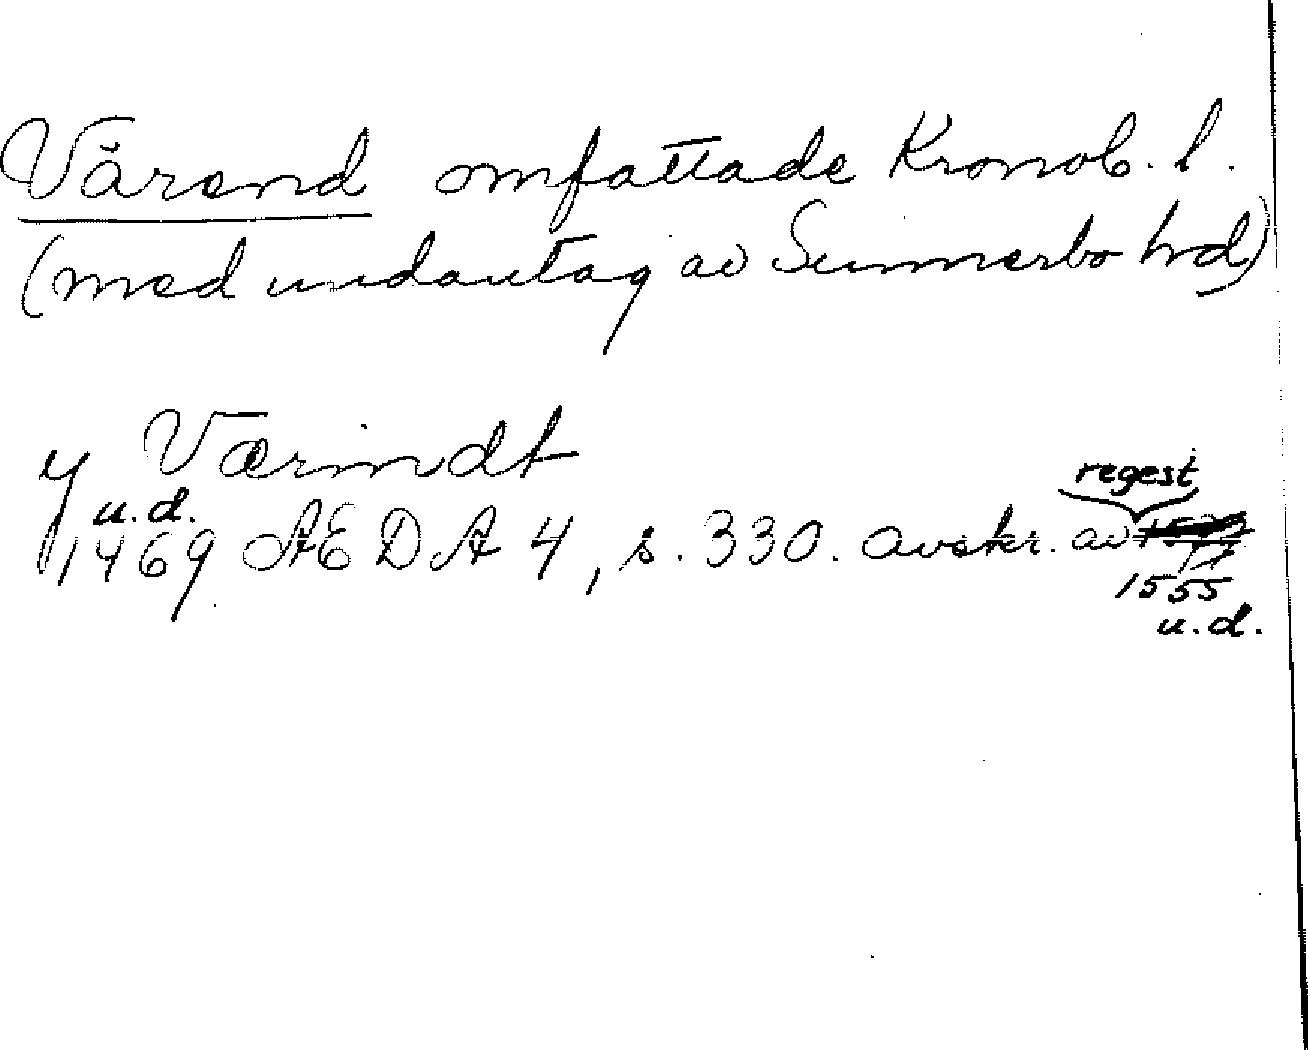 Värend omfattade Kronob. l.
(med undantag av Sunnerbo hd)
y Værindt
u.d.
regest
1469 ÆDA 4, s. 330. avskr. av
1555
u.d.